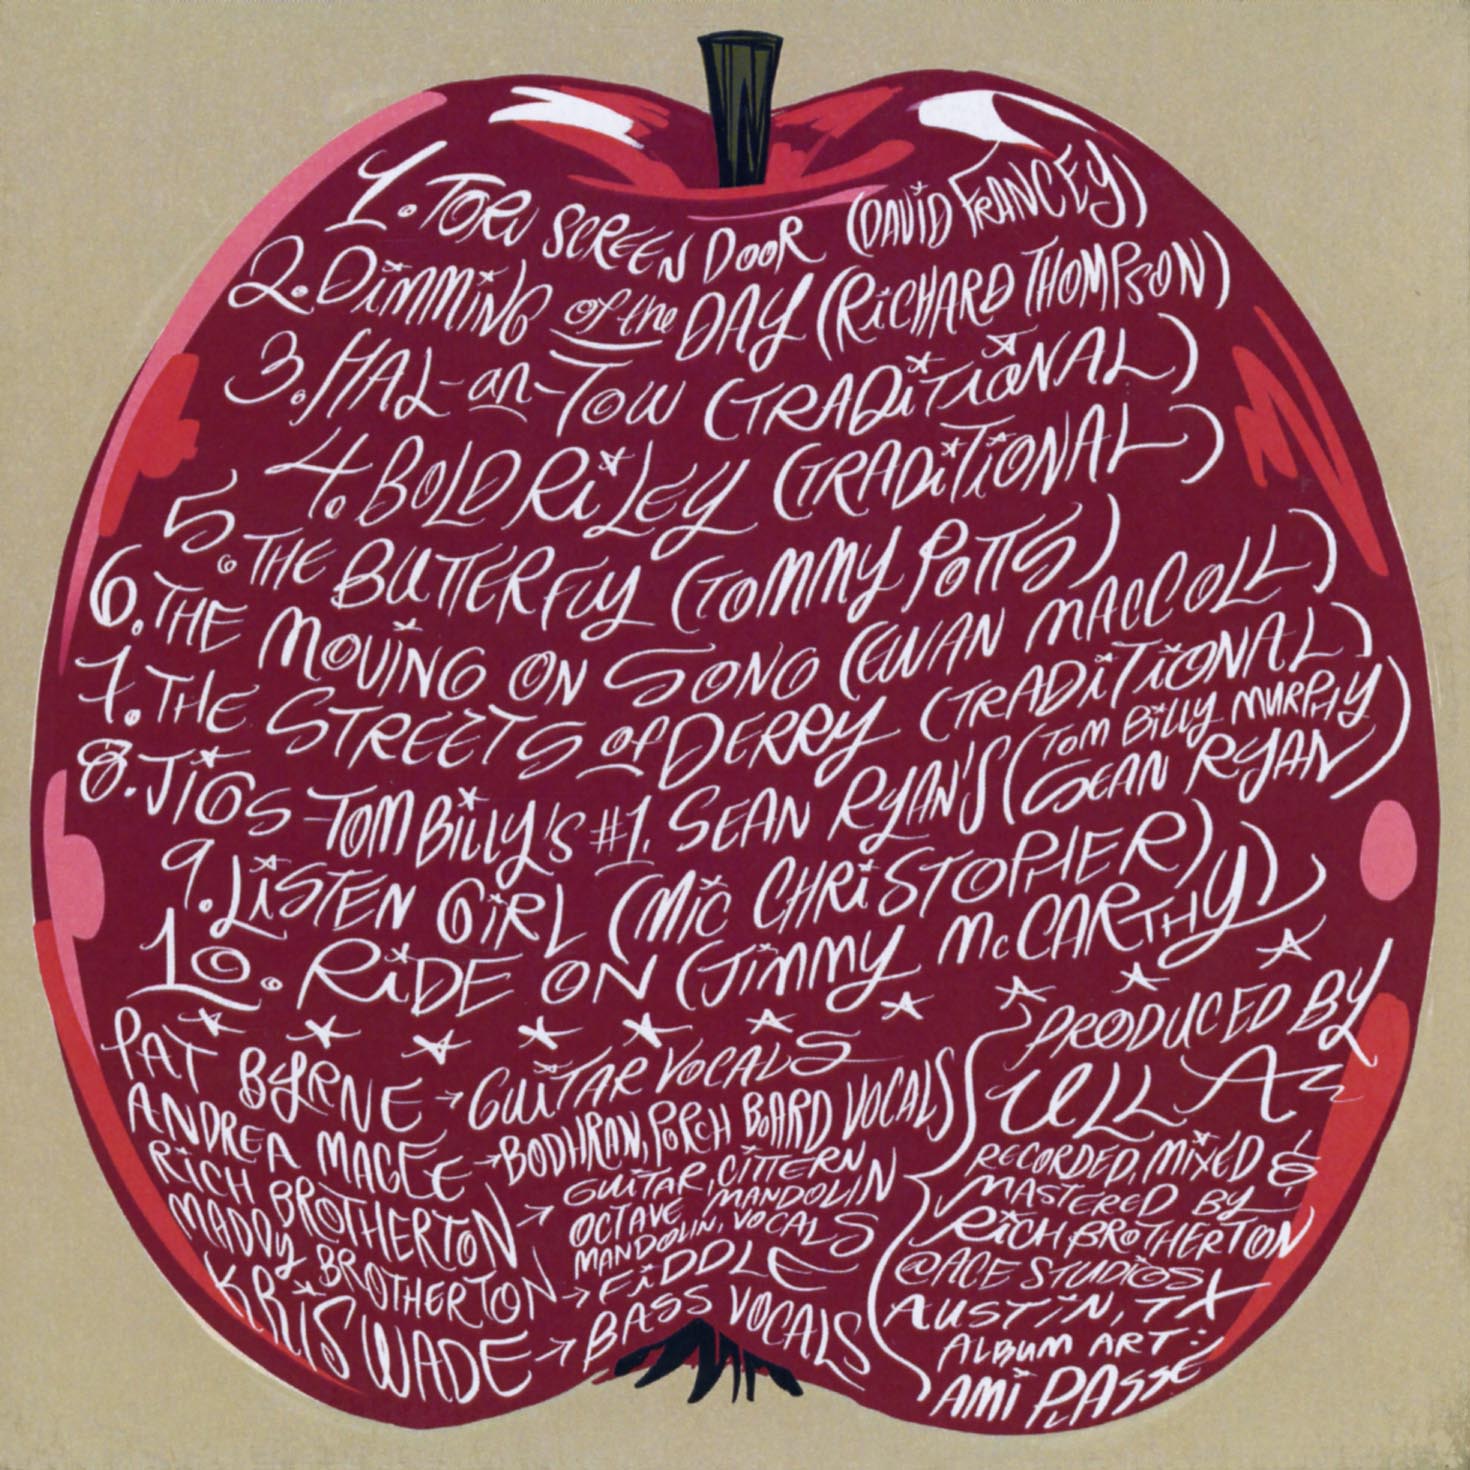 1. TORN SCREEN DOOR (DAVID FRANCEY)
2. DIMMING of the DAY (RICHARD THOMPSON)
3. HAL-an-TOW (TRADITIONAL)
4. BOLD RILEY (TRADITIONAL)
5. THE BUTTERFLY (TOMMY POTTS)
6. THE MOVING ON SONG (EWAN MACCOLL)
7. THE STREETS of DERRY (TRADITIONAL)
8. JIGS-TOM BILLY'S #1. SEAN RYAN'S (TOM BILLY MURPHY
SEAN RYAN)
9. LISTEN GIRL (MIC CHRISTOPHER)
10. RIDE ON (JIMMY McCARTHY)
PAT BYRNE → GUITAR VOCALS
ANDREA MAGEE → BODHRAN, PORCH BOARD VOCALS
RICH BROTHERTON → GUITAR, CITTERN
OCTAVE MANDOLIN
MANDOLIN, VOCALS
MADDY BROTHERTON → FIDDLE
KRIS WADE → BASS VOCALS
PRODUCED BY
RECORDED, MIXED &
MASTERED BY
RICH BROTHERTON
@ACE STUDIOS
AUSTIN, TX
ALBUM ART:
AMI PLASSE